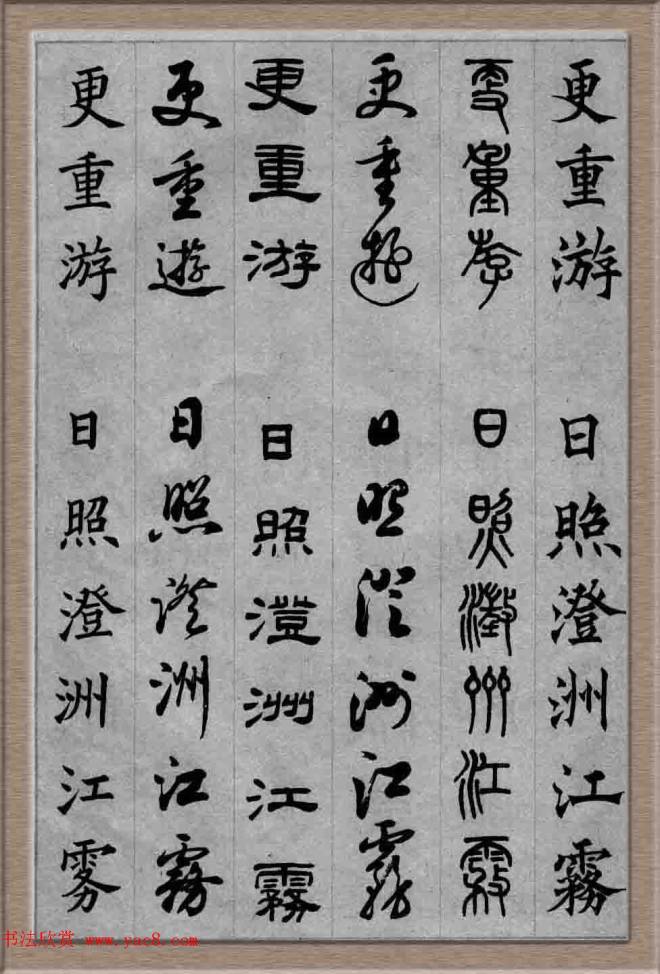 更重游 日照澄洲江霧
更重斿 日照澂州江霧
更重遊 日照澄洲江霧
更重游 日照澄洲江霧
更重遊 日照澄洲江霧
更重游 日照澄洲江雾
书法欣赏 www.yac8.com